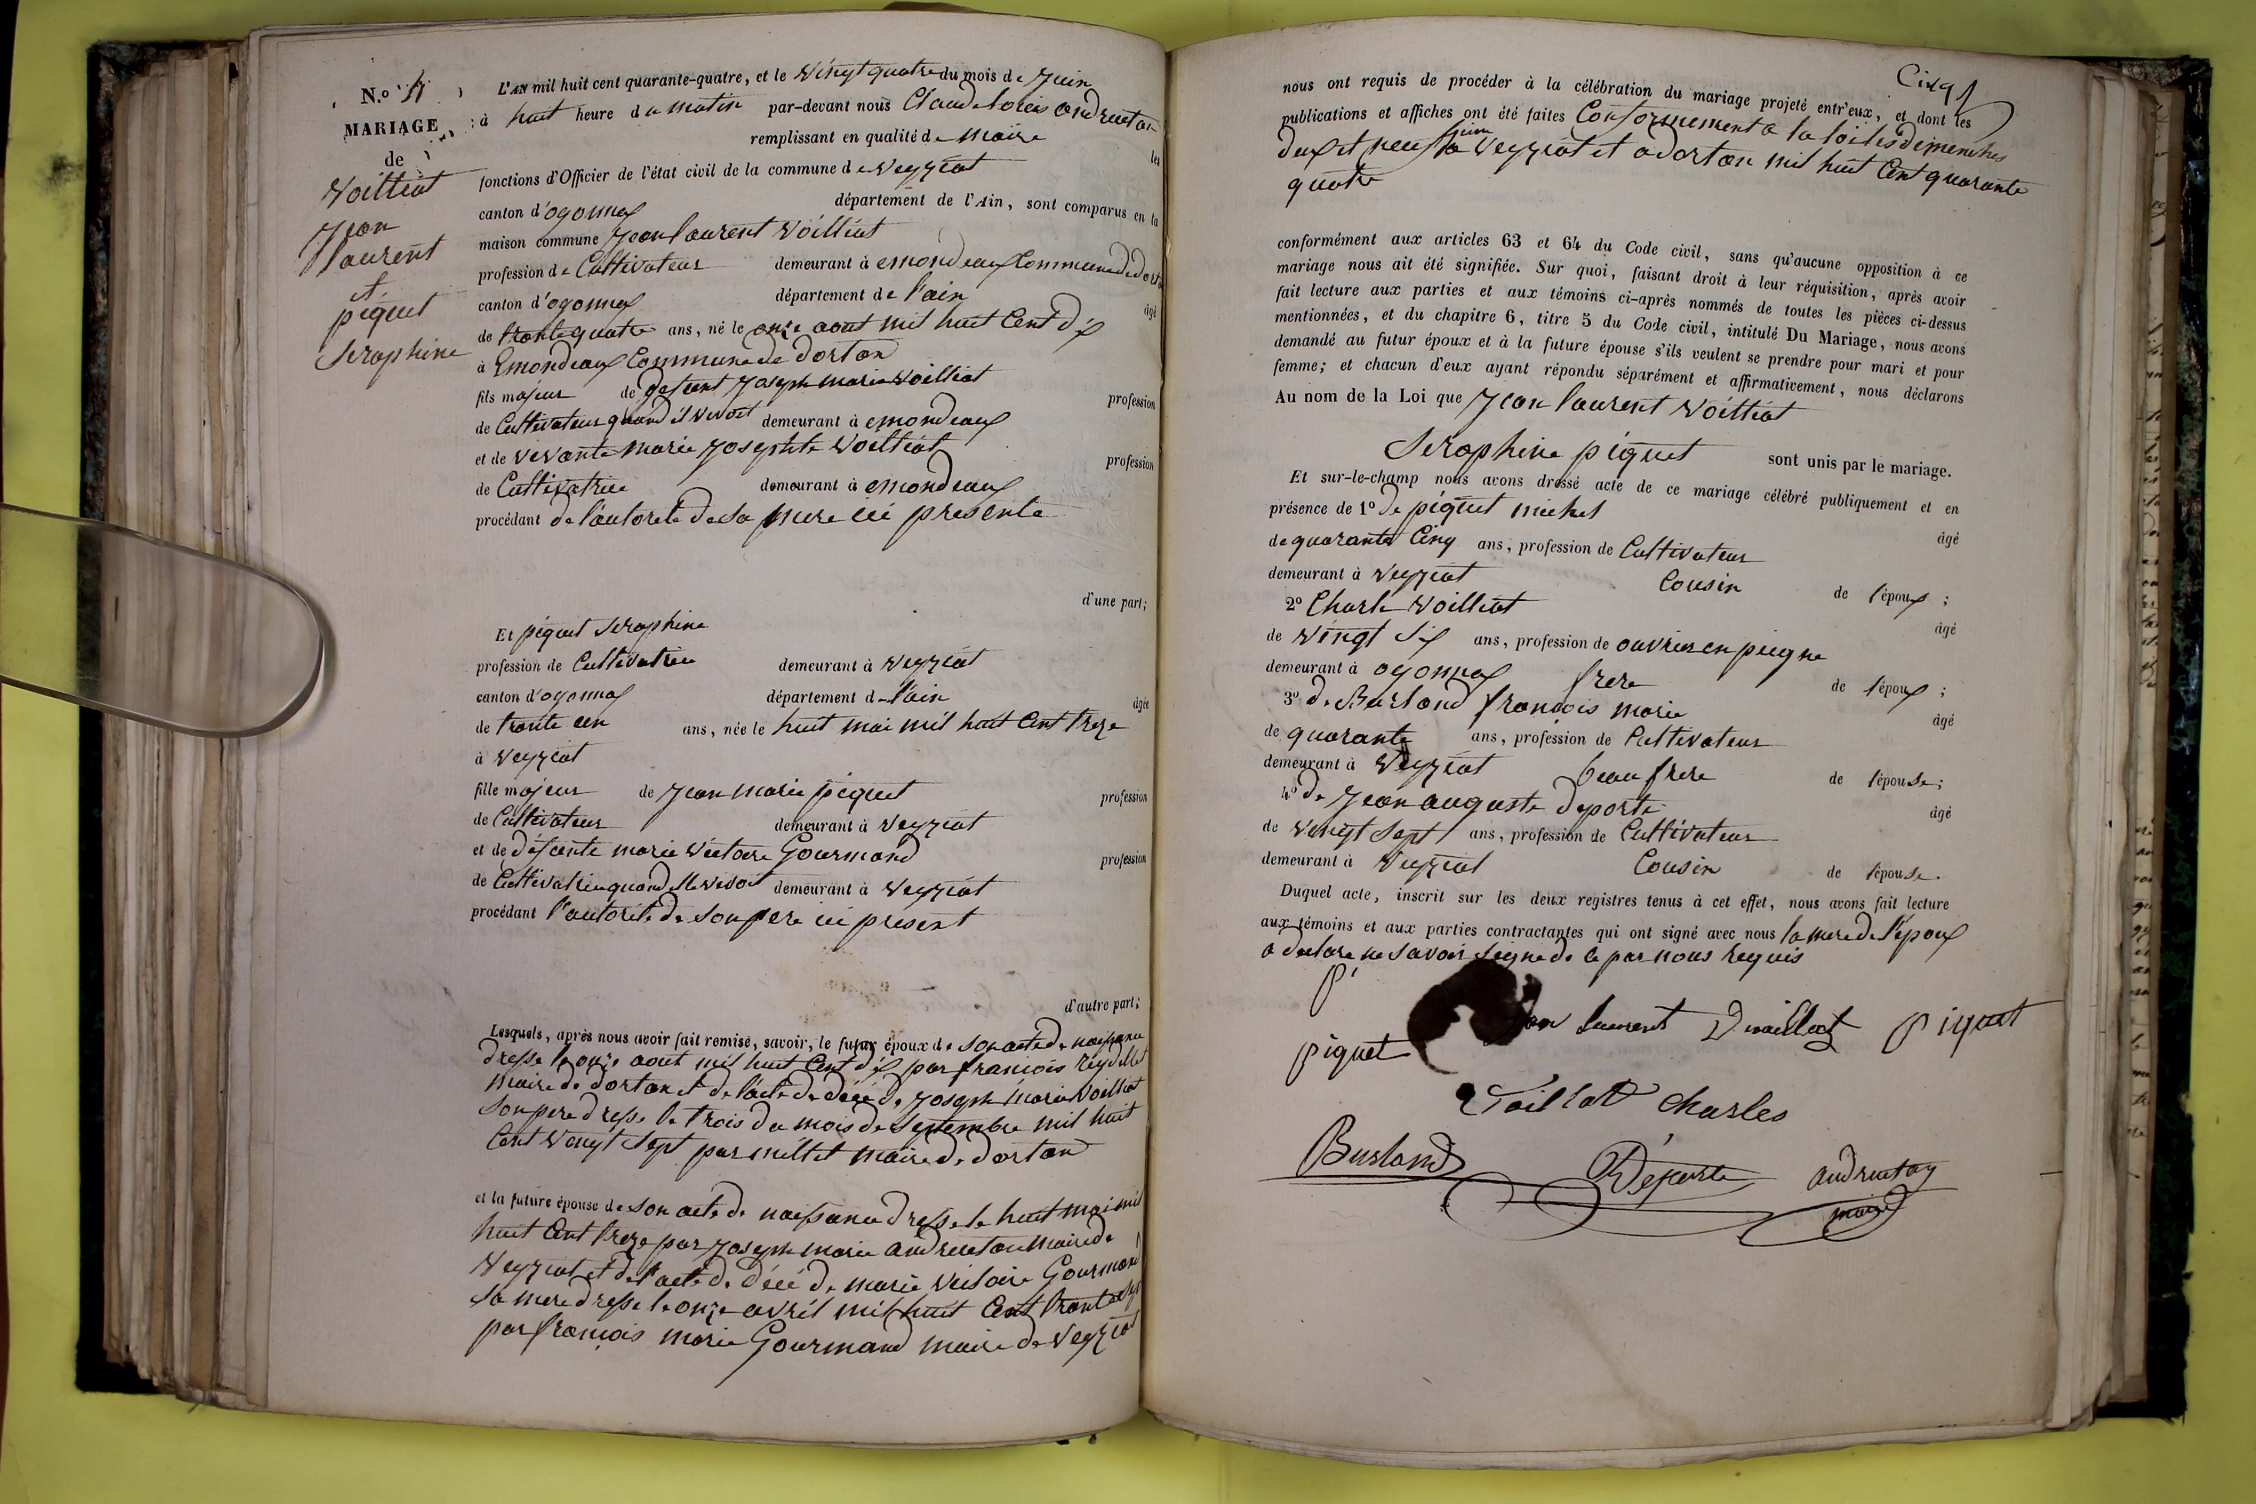 N.o 5
MARIAGE
de
Voilliat
Jean
laurent
et
piquet
Seraphine
L'AN mil huit cent quarante-quatre, et le Vingt quatre du mois de Juin
à huit heure du matin par-devant nous Claude louis andruetan
remplissant en qualité de maire les
fonctions d'Officier de l'état civil de la commune de Veyziat
canton d'oyonnax département de l'Ain, sont comparus en la
maison commune Jean laurent Voilliat
profession de Cultivateur demeurant à emondeaux Commune de dortan
canton d'oyonnax département de l'ain âgé
de trante quatre ans, né le onze aout mil huit Cent dix
à Emondeaux Commune de dortan
fils majeur de defeunt Joseph marie Voilliat profession
de Cultivateur quand il vivoit demeurant à emondeaux
et de vivante marie Josephte Voilliat profession
de Cultivatrice demeurant à emondeaux
procédant de l'autorete de sa mere ici presente
d'une part;
Et piquet Seraphine
profession de Cultivatrice demeurant à Veyziat
canton d'oyonnax département de l'ain âgée
de trante un ans, née le huit mai mil huit Cent treze
à Veyziat
fille majeur de Jean marie piquet profession
de Cultivateur demeurant à Veyziat
et de défeunte marie Victoire Gourmand profession
de Cultivatrice quand elle vivoit demeurant à Veyziat
procédant l'autorité de son pere ici present
d'autre part;
Lesquels, après nous avoir fait remise, savoir, le futur époux de son acte de naissance
dresse le onze aout mil huit Cent dix par francois Reydellet
maire de dortan et de l'acte de décé de Joseph marie Voilliat
son pere dresse le trois du mois de Septembre mil huit
Cent Vengt Sept par millet maire de dortan
et la future épouse de son acte de naissance dresse le huit mai mil
huit Cent treze par Joseph marie andruetan maire de
Veyziat et de l'acte de décé de marie Victoire Gourmand
sa mere dresse le onze avril mil huit Cent trante
par francois marie Gourmand maire de Veyziat
Cinq
nous ont requis de procéder à la célébration du mariage projeté entr'eux, et dont les
publications et affiches ont été faites Conformement a la loi les dimenches
deux et neuf juin a Veyziat et a dortan mil huit Cent quarante
quatre
conformément aux articles 63 et 64 du Code civil, sans qu'aucune opposition à ce
mariage nous ait été signifiée. Sur quoi, faisant droit à leur réquisition, après avoir
fait lecture aux parties et aux témoins ci-après nommés de toutes les pièces ci-dessus
mentionnées, et du chapitre 6, titre 5 du Code civil, intitulé Du Mariage, nous avons
demandé au futur époux et à la future épouse s'ils veulent se prendre pour mari et pour
femme; et chacun d'eux ayant répondu séparément et affirmativement, nous déclarons
Au nom de la Loi que Jean laurent Voilliat
Seraphine piquet sont unis par le mariage.
Et sur-le-champ nous avons dressé acte de ce mariage célébré publiquement et en
présence de 1º de piquet michel âgé
de quarante Cinq ans, profession de Cultivateur
demeurant à Veyziat Cousin de l'époux ;
2º Charle Voilliat âgé
de Vingt six ans, profession de ouvrier en piegne
demeurant à oyonnax frere de l'époux ;
3º de Burland francois marie âgé
de quarante ans, profession de Cultivateur
demeurant à Veyziat beau frere de l'épouse;
4º de Jean auguste deporte âgé
de Vengt Sept ans, profession de Cultivateur
demeurant à Veyziat Cousin de l'épouse.
Duquel acte, inscrit sur les deux registres tenus à cet effet, nous avons fait lecture
aux témoins et aux parties contractantes qui ont signé avec nous la mere de l'époux
a declare ne savoir signe de ce par nous requis
laurent piquet
piquet
Voillat charles
Burland Déporte andruetan
maire